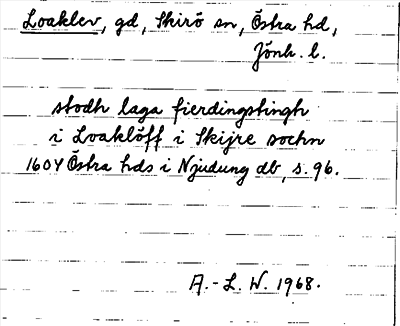 Loaklev, gd, Skirö sn, Östra hd,
Jönk. l.
stodh laga fierdingstingh
i Loaklöff i Skijre sochn
1604 Östra hds i Njudung db, s. 96.
A.-L. W. 1968.